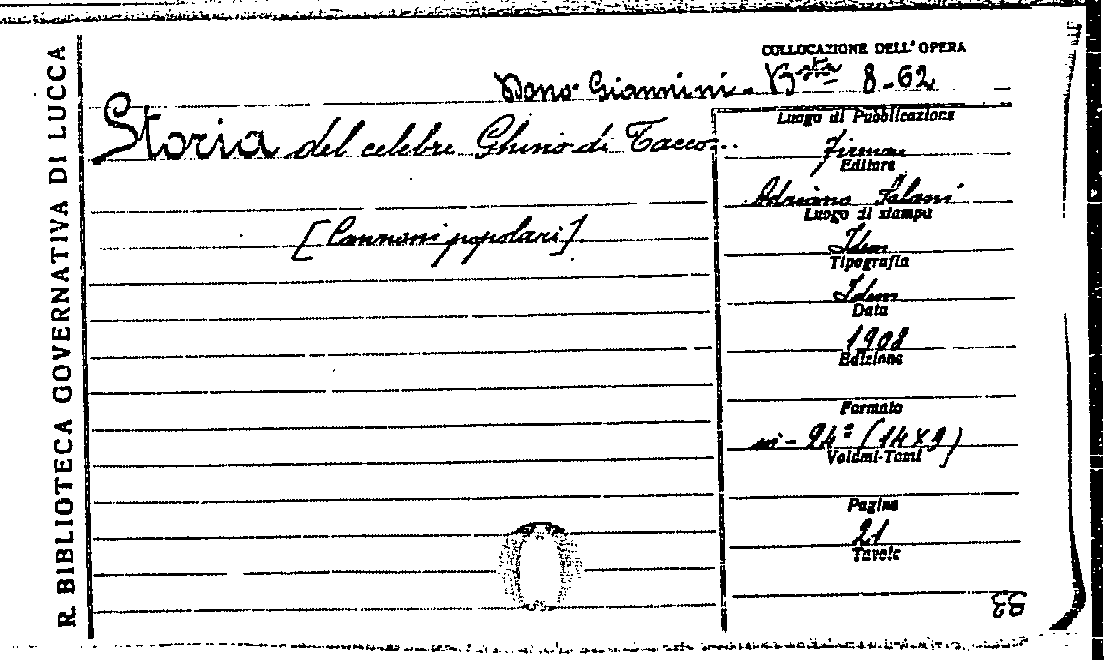 R. BIBLIOTECA GOVERNATIVA DI LUCCA
COLLOCAZIONE DELL'OPERA
Dono Giannini - Bsta 8-62
Storia del celebre Ghino di Tacco...
[Canzoni popolari]
Luogo di Pubblicazione
Firenze
Editore
Adriano Salani
Luogo di stampa
Idem
Tipografia
Idem
Data
1908
Edizione
Formato
in-24º (14X9)
Volumi-Tomi
Pagine
21
Tavole